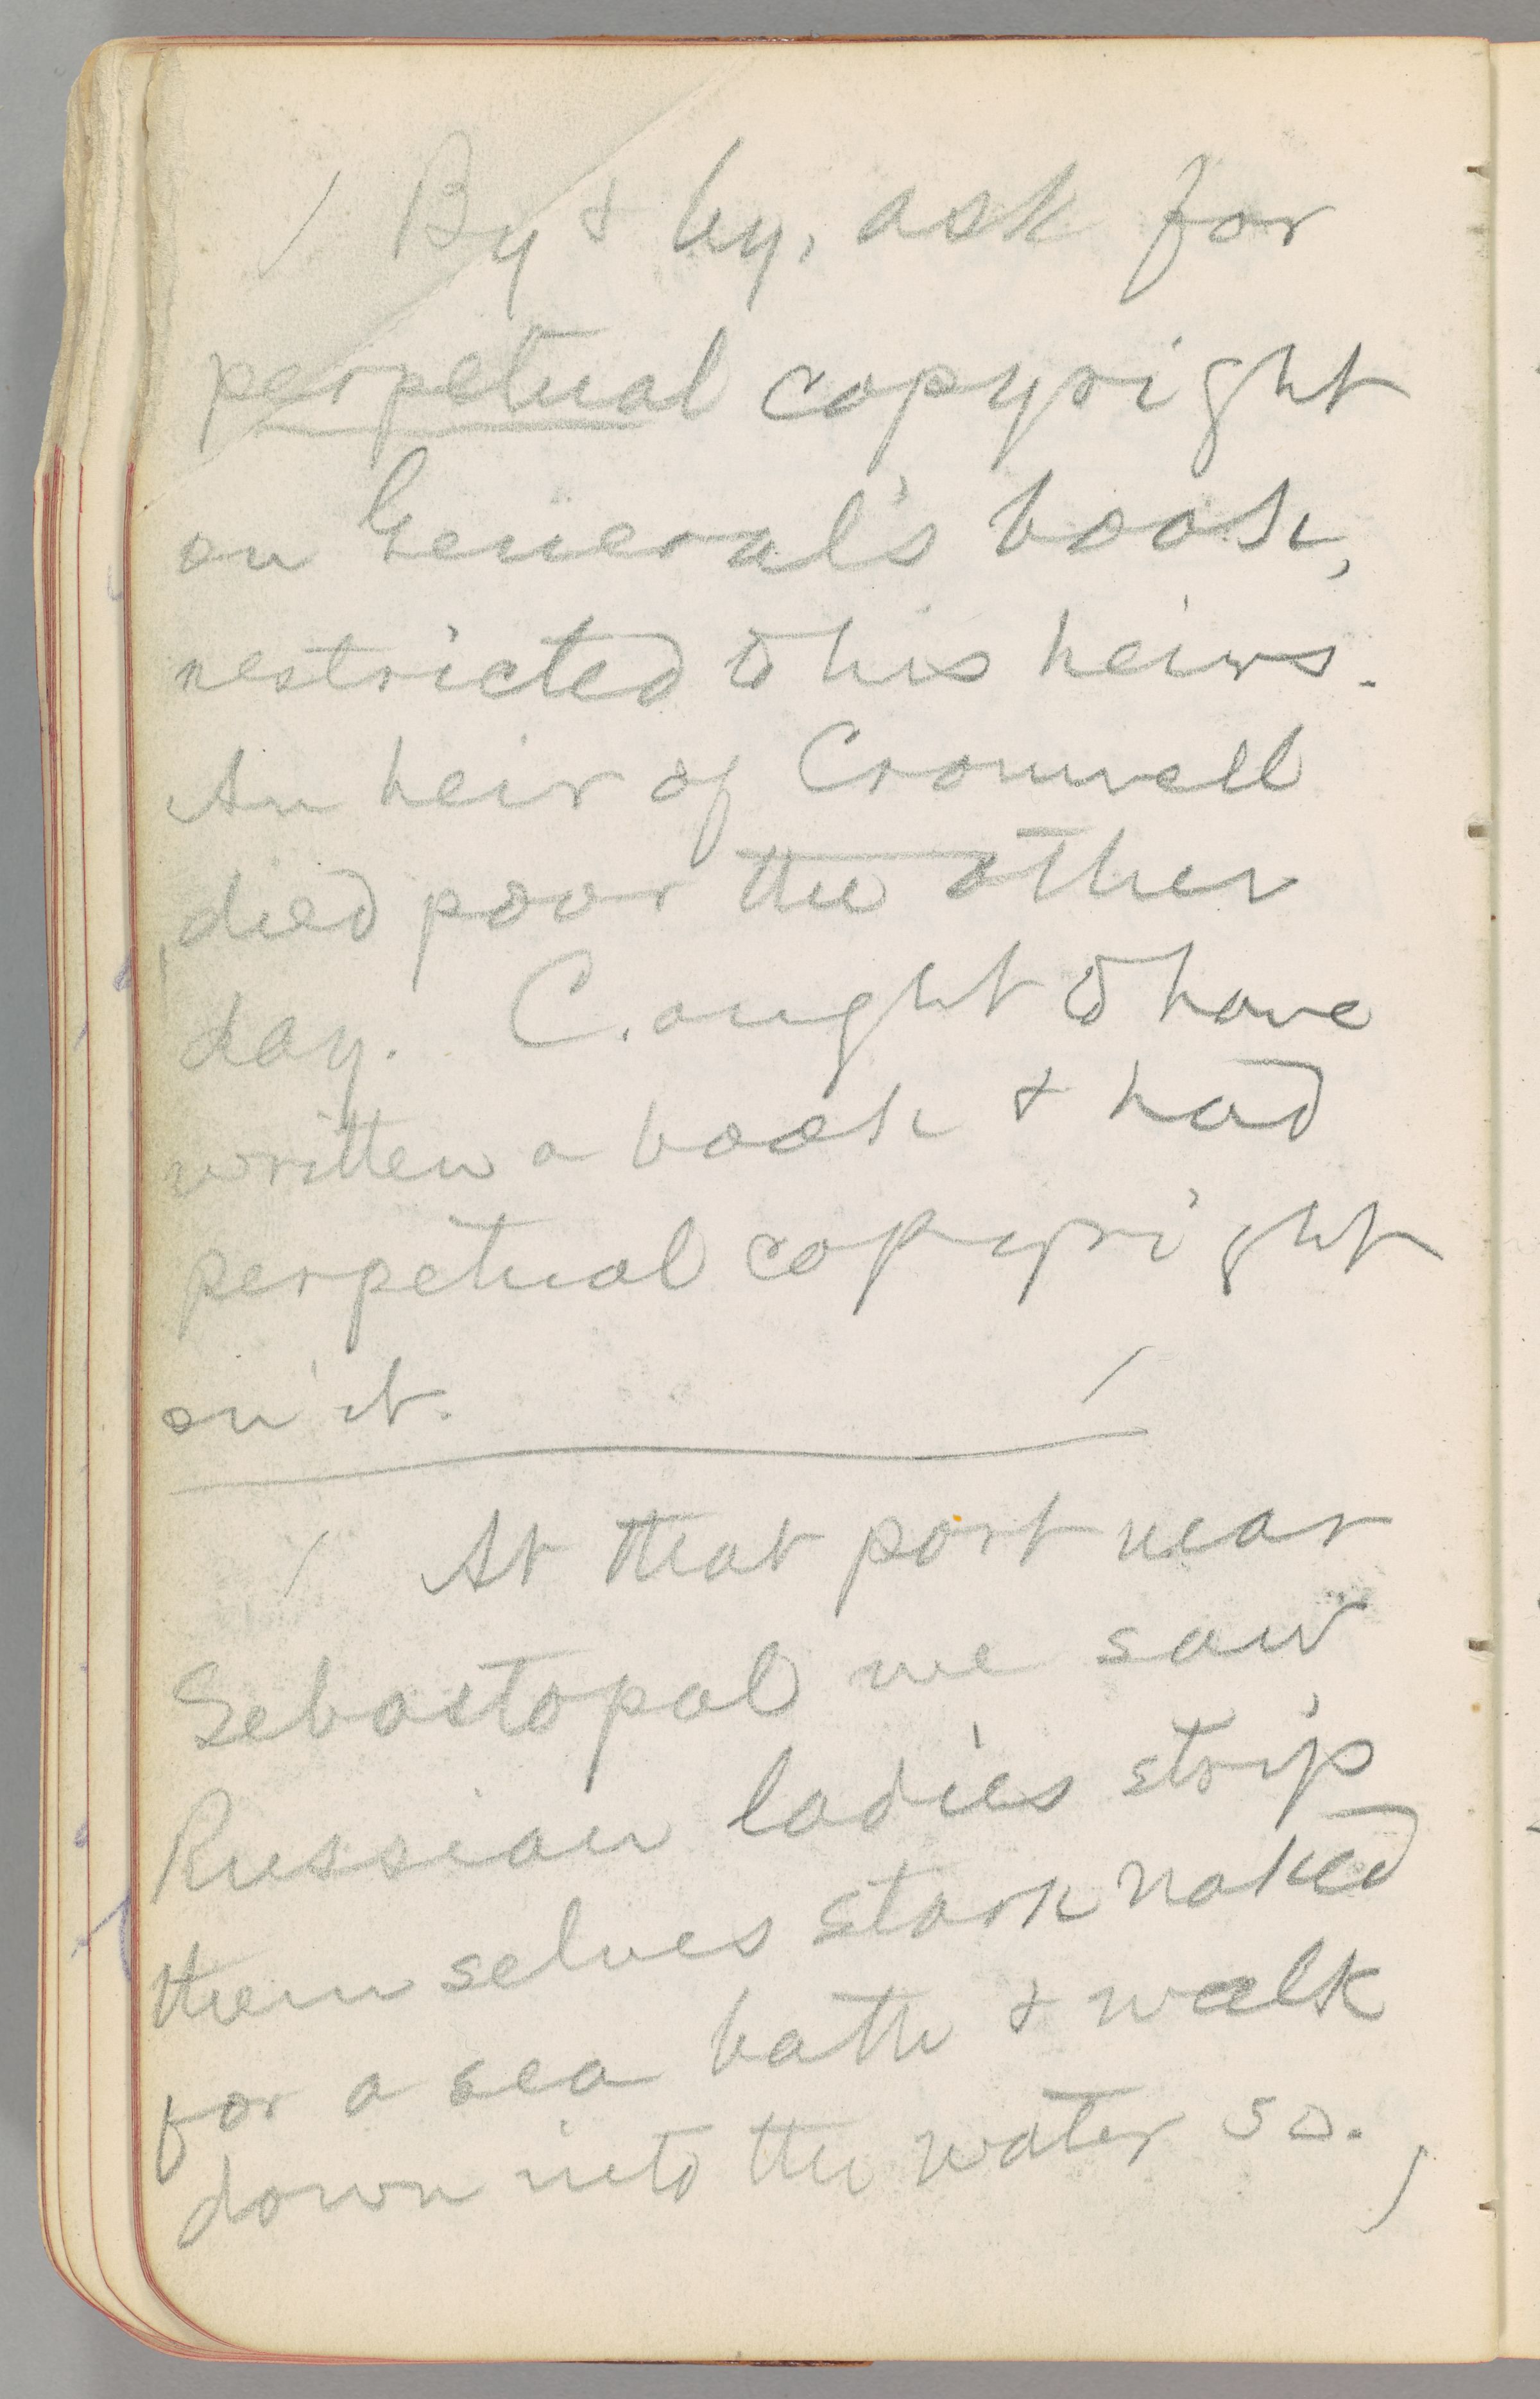 / By & by, ask for
perpetual copyright
on General's book,
restricted to his heirs.
An heir of Cromwell
died poor the other
day. C. ought to have
written a book & had
perpetual copyright
on it. /
/ At that port near
Sebastopol we saw
Russian ladies strip
themselves stark naked
for a sea bath & walk
down into the water so. /